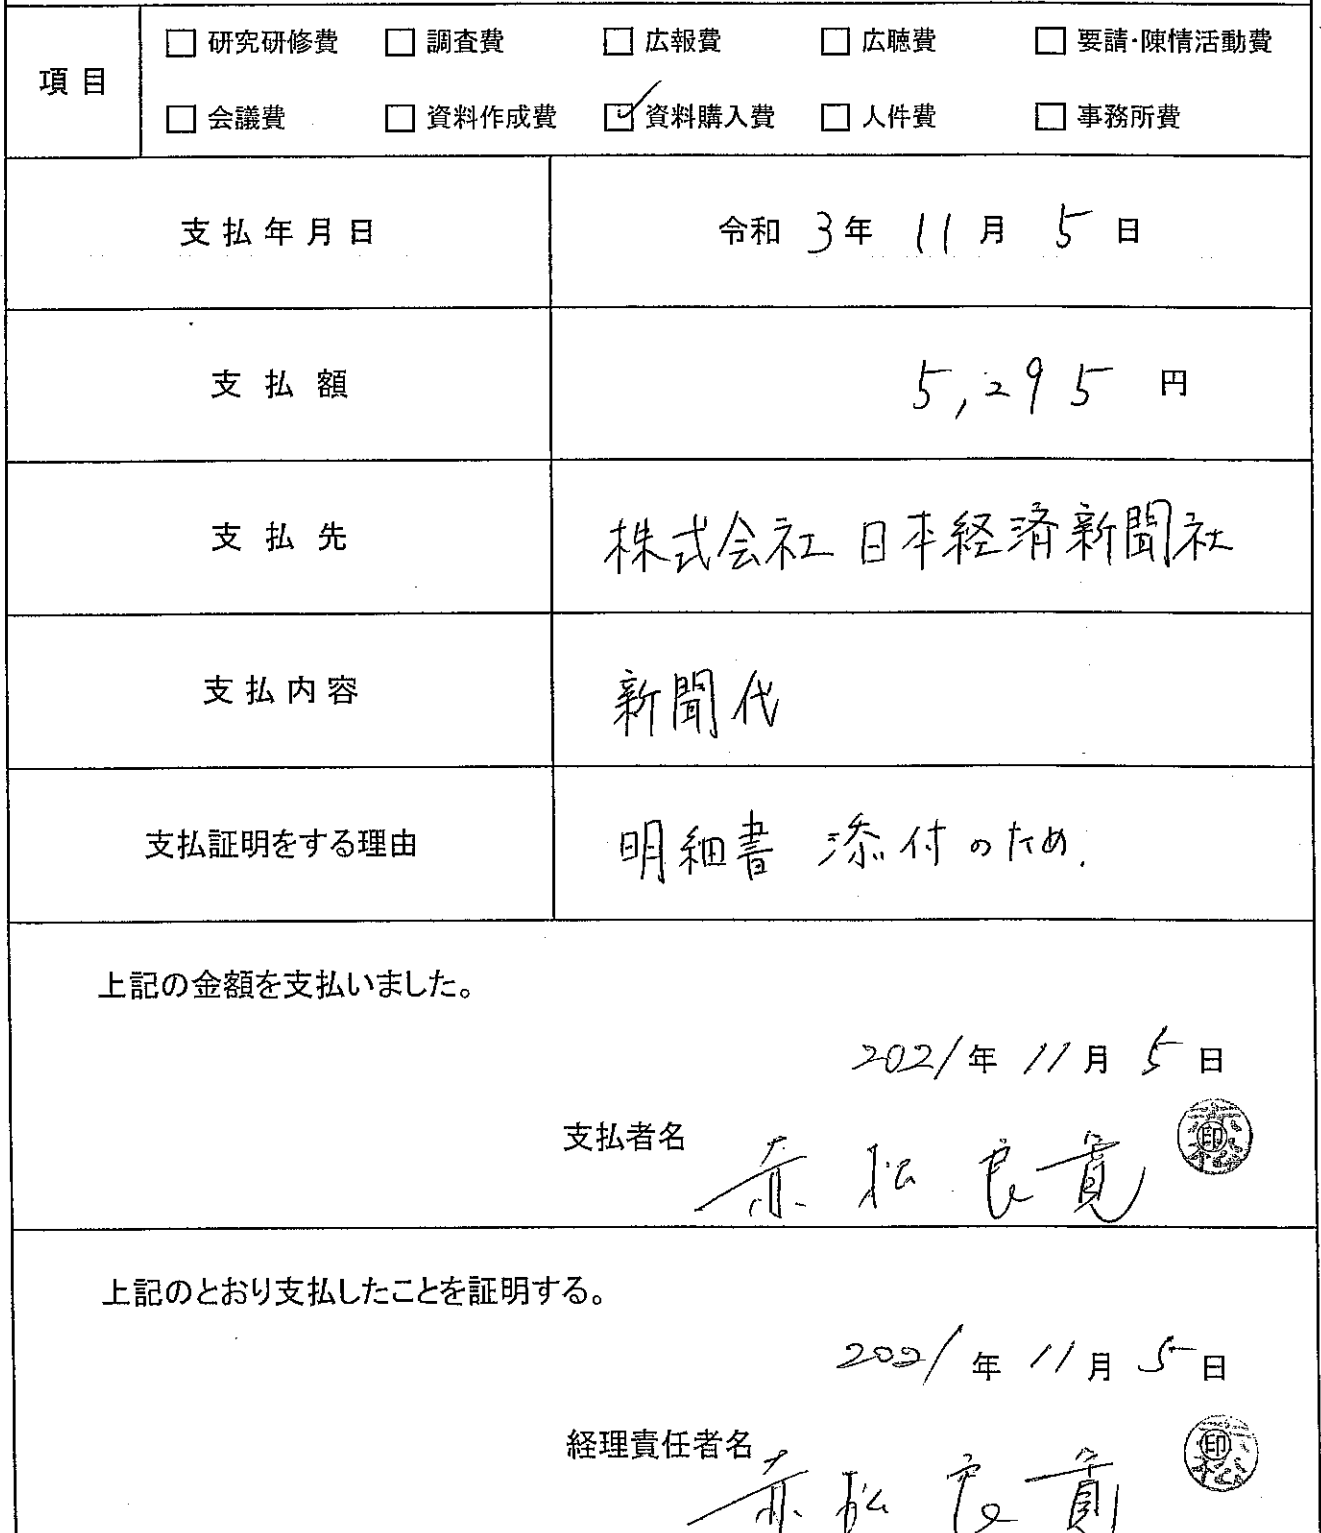 項目
□ 研究研修費 □ 調査費 □ 広報費 □ 広聴費 □ 要請・陳情活動費
□ 会議費 □ 資料作成費 ☑ 資料購入費 □ 人件費 □ 事務所費
支払年月日 令和 3年 11月 5日
支払額 5,295 円
支払先 株式会社 日本経済新聞社
支払内容 新聞代
支払証明をする理由 明細書 添付のため.
上記の金額を支払いました。
2021年 11月 5日
支払者名 赤松良寛 赤松 印
上記のとおり支払したことを証明する。
2021年 11月 5日
経理責任者名 赤松良寛 赤松 印